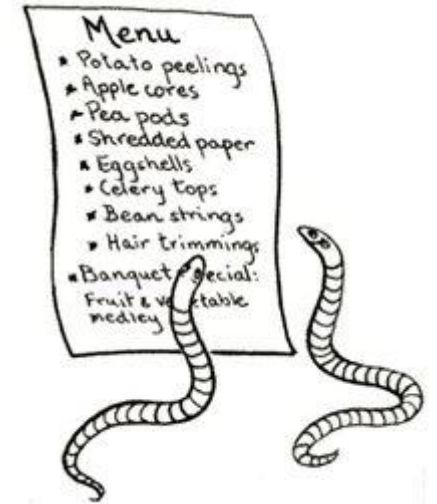 Menu
Potato peelings
Apple cores
Pea pods
Shredded paper
Eggshells
Celery tops
Bean strings
Hair trimmings
Banquet ecial:
Fruit & ve etable
medley